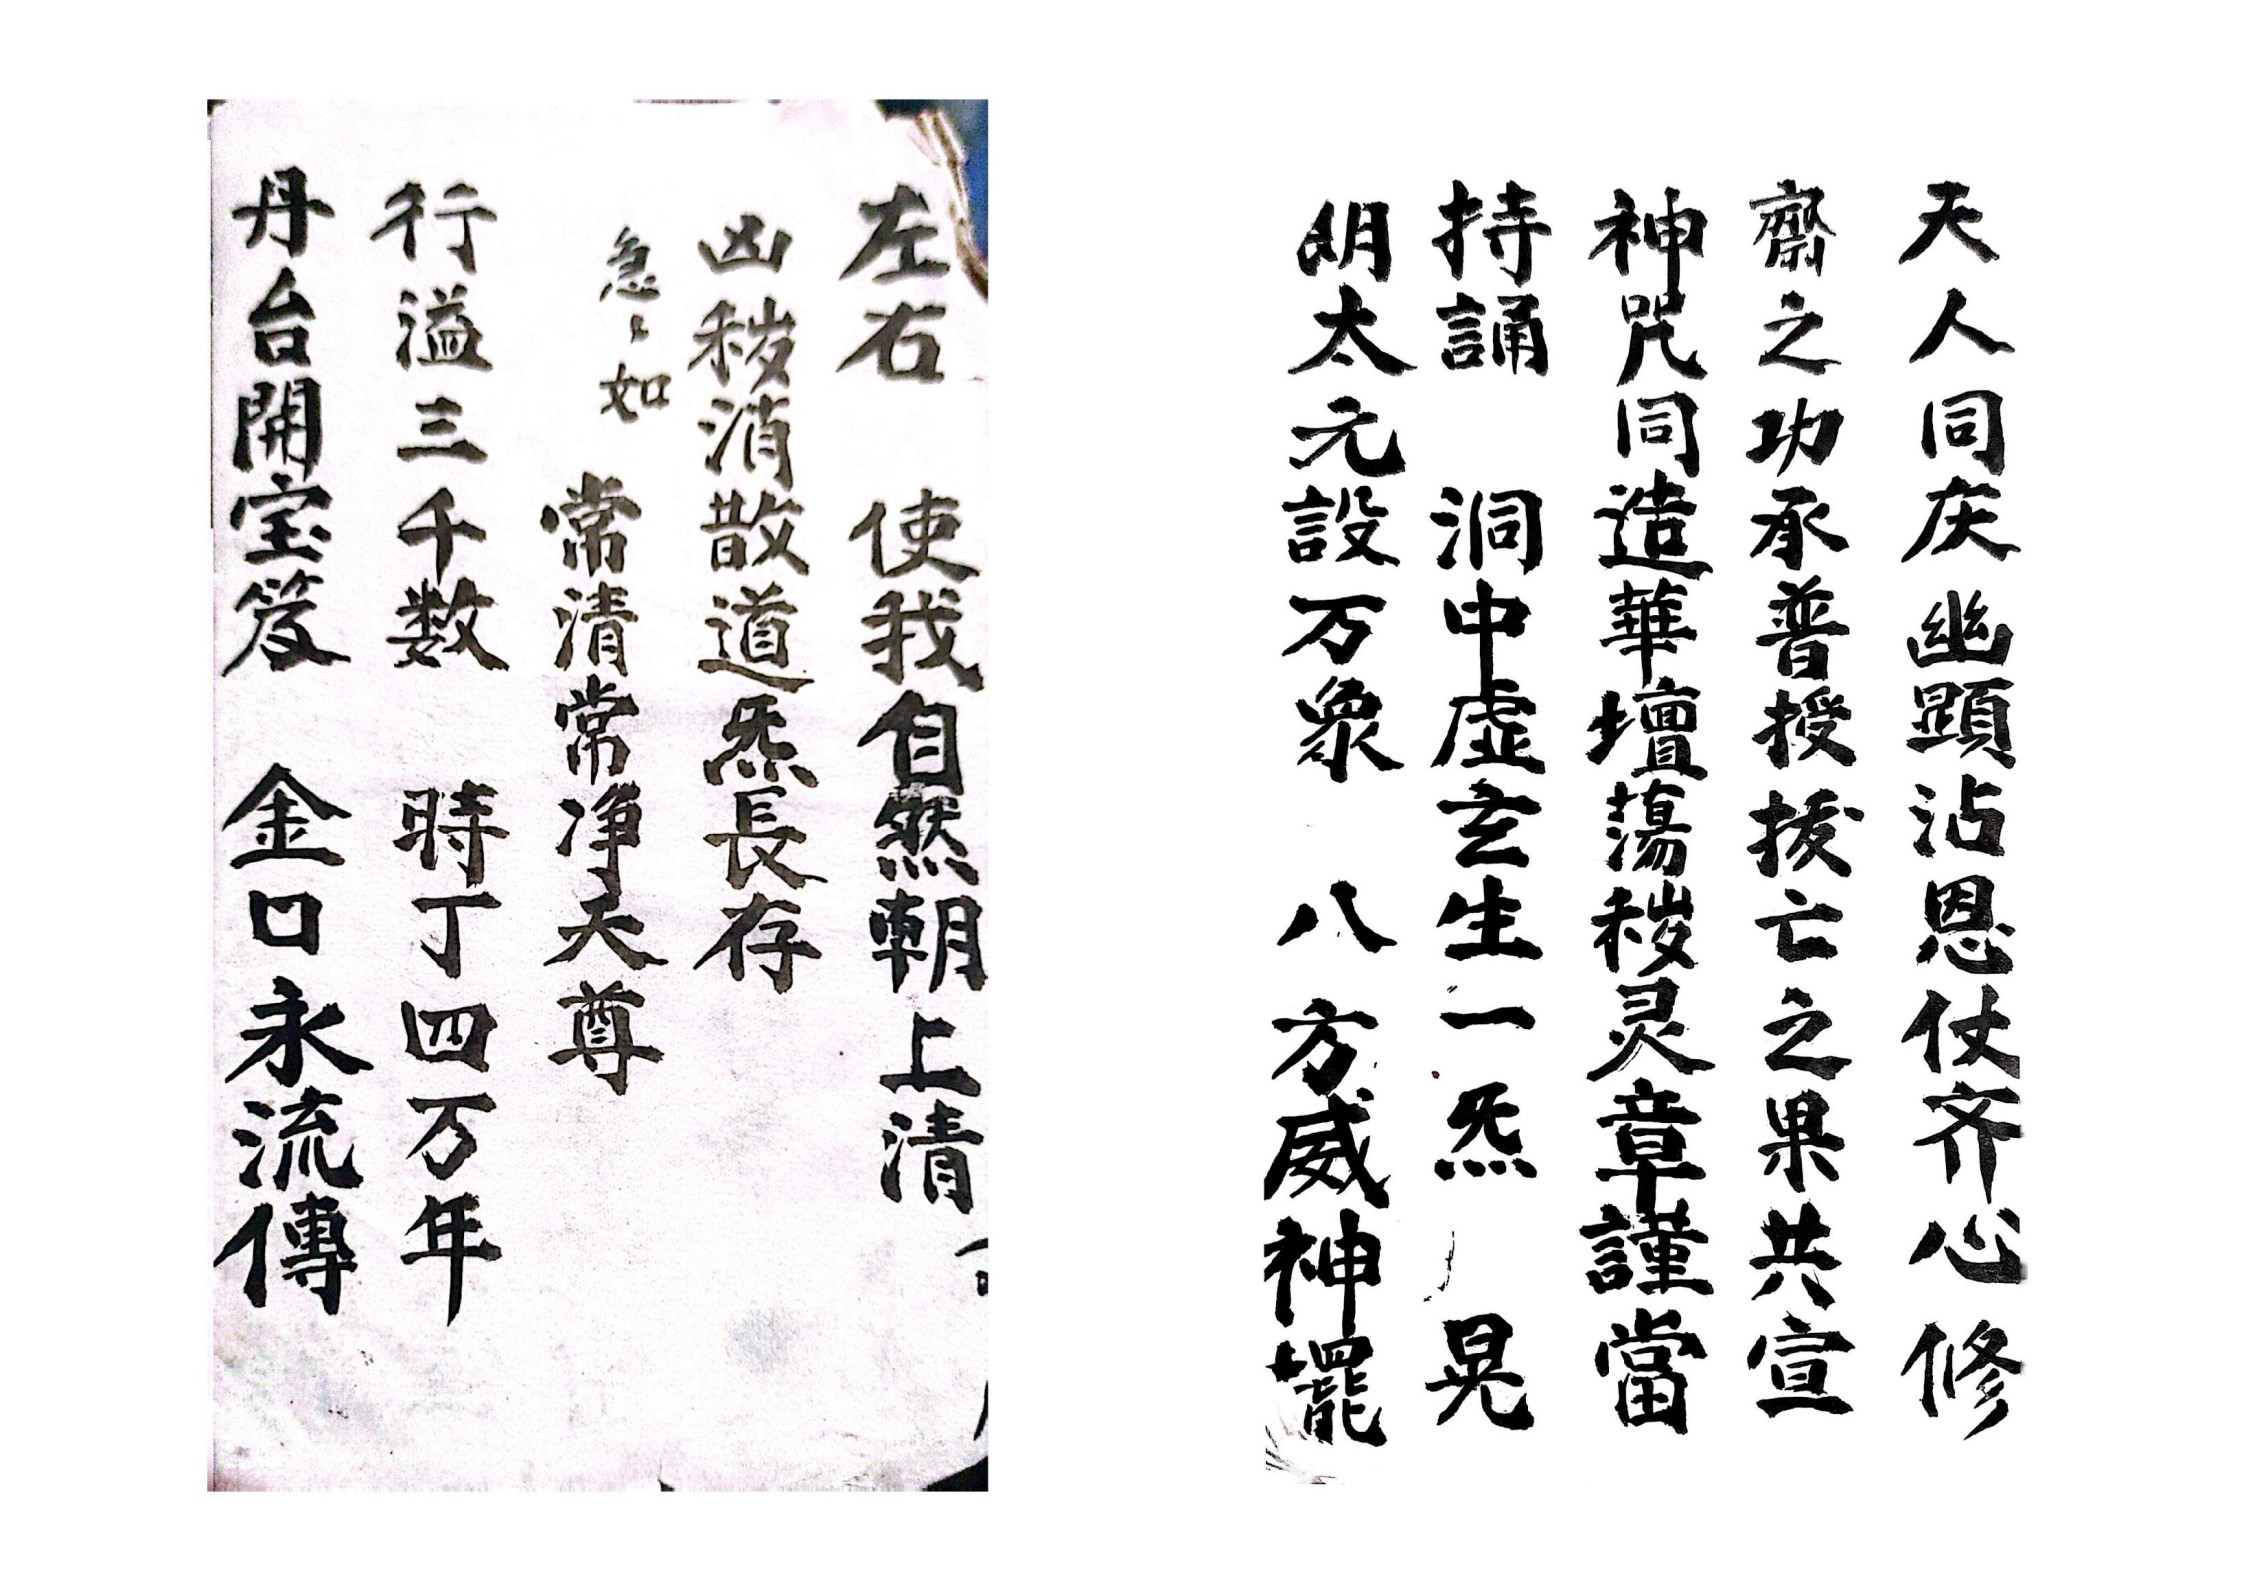 天人同庆幽顕沾恩仗齐心修
齋之功承普授拔亡之果共宣
神咒同造華壇蕩秽灵章謹當
持誦 洞中虚玄生一炁 晃
明太元設万象 八方威神擺
左右 使我自然朝上清
凶秽消散道炁長存
急〻如
常清常净天尊
行溢三千数 時丁四万年
丹台開宝笈 金口永流傳